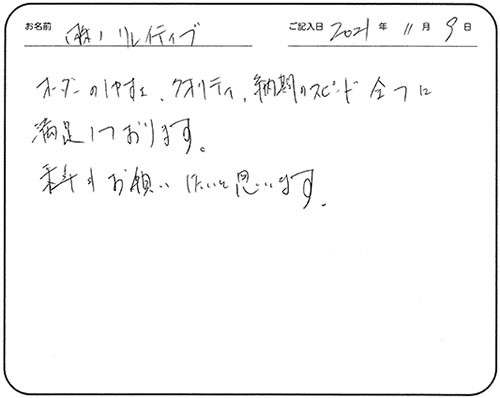 お名前 (株)リレイティブ ご記入日 2021年 11月 9日
オーダーのしやすさ、クオリティ、納期のスピード 全てに
満足しております。
来年もお願いしたいと思います。